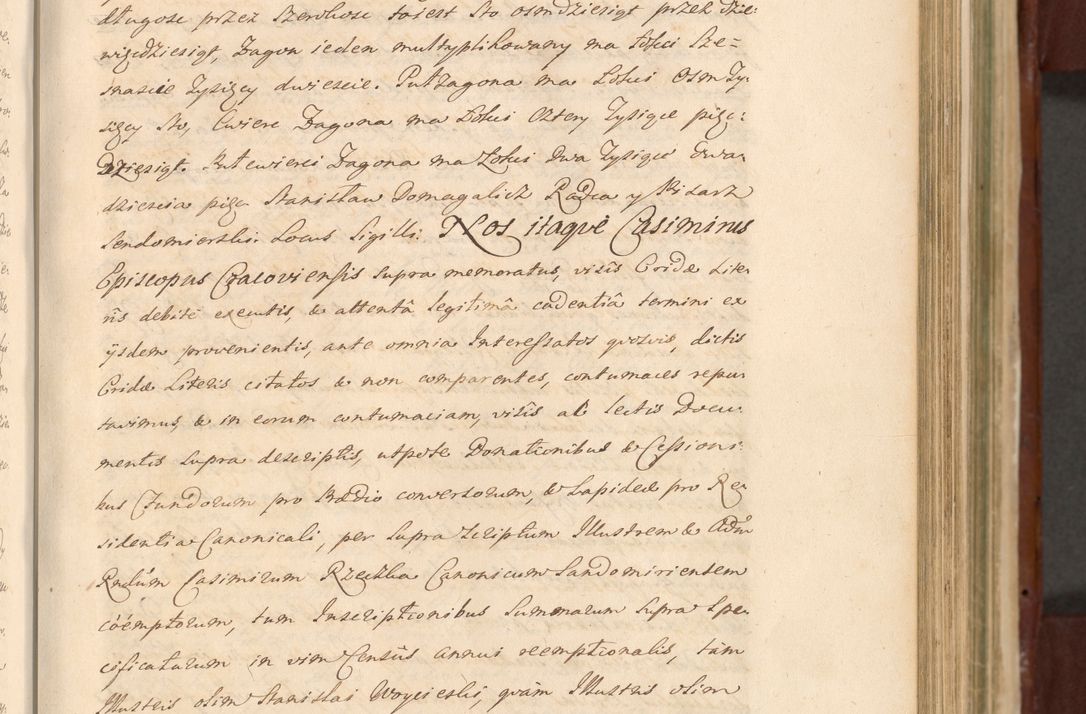 długosc przez szerokosc to iest sto osmdziesiąt przez dzie:
więcdziesiąt, Zagon ieden multyplikowany ma łokci sze=
snascie Tysięcy dwiescie. Puł Zagona ma Łokci Osm Ty:
sięcy sto, Cwierc Zagona ma Łokci Cztery Tysiące pięc:
Dziesiąt. Puł cwierci Zagona ma Łokci Dwa Tysiące dwa
dziescia pięc Stanisław Domagalicz Radca y Pisarz
Sendomierski. Locus Sigilli. Nos itaque Casimirus
Episcopus Cracoviensis supra memoratus, visis Cridæ Lite
ris debitè executis, & attentâ legitimâ cadentiâ termini ex
ijsdem provenientis, ante omnia Interessatos quosvis, dictis
Cridæ Literis citatos & non comparentes, contumaces repu
tavimus, & in eorum contumaciam, visis ac lectis Docu:
mentis supra descriptis, utpote Donationibus & Cessioni
bus Fundorum pro Prædio conversorum, & Lapideæ pro Re
sidentia Canonicali, per supra scriptum Illustrem & Adm
Rndum Casimirum Rzeczka Canonicum Sandomiriensem
coëmptorum, tum Inscriptionibus Summarum supra spe
cificatarum in vim Censûs annui reemptionalis, tàm
Illustris olim Stanislai Woycieski, quàm Illustris olim